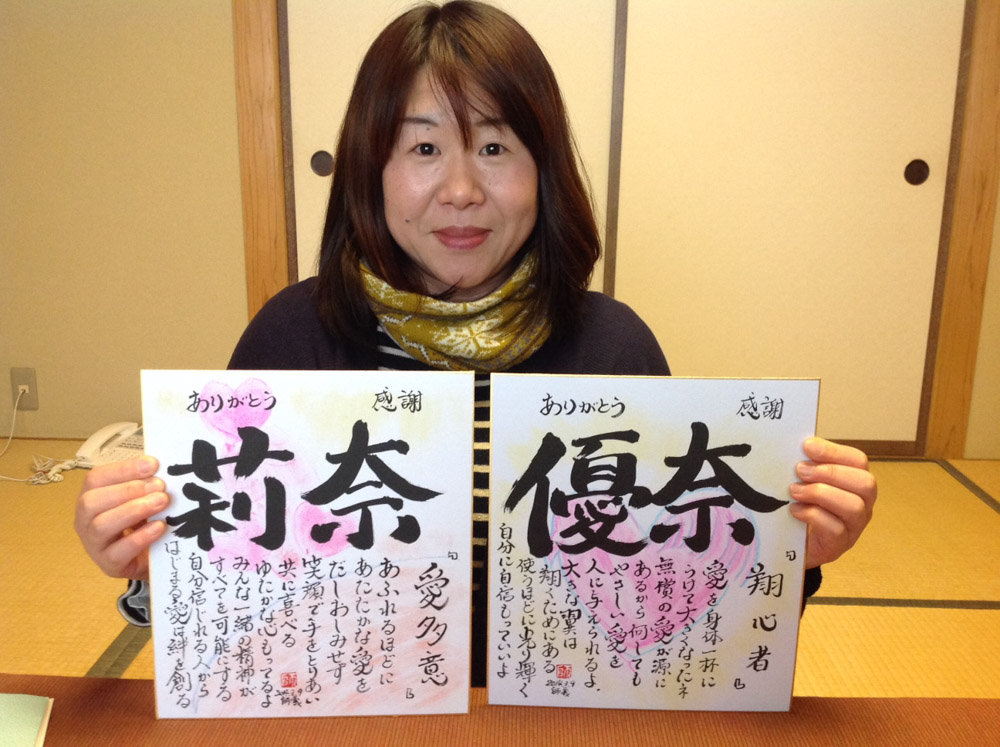 ありがとう
感謝
莉奈
『愛多意』
あふれるほどに
あたたかな愛を
だしおしみせず
笑顔で手をとりあい
共に喜べる
ゆたかな心もってるよ
みんな一緒の精神が
すべてを可能にする
自分信じれる人から
はじまる愛は絆を創る
ありがとう
感謝
優奈
『翔心者』
愛を身体一杯に
うけて大きくなったネ
無償の愛が源に
あるから何しても
やさしい愛を
人に与えられるよ
大きな翼は
翔くためにある
使うほどに光り輝く
自分に自信もっていいよ